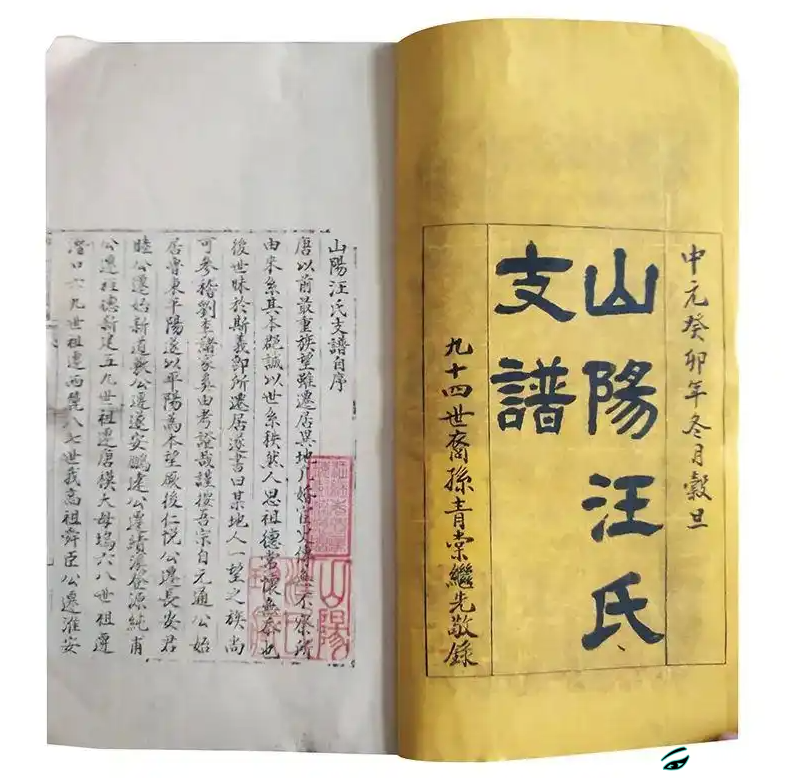 中元癸卯年冬月穀旦
山陽汪氏
支譜
九十四世裔孫青棠繼先敬錄
山陽汪氏支譜自序
唐以前最重族望雖遷居異地凡婚宦必傳無不察所
由來系其本郡誠以世系秩然人思祖德常懷無忝也
後世昧於斯義即所遷居遂書曰某地人一望之族尚
可參稽劉李諸家奚由考證哉謹按吾宗自元通公始
居魯東平陽遂以平陽為本望厥後仁悅公遷長安君
睦公遷始新道獻公遷遂安鵬遠公遷績溪登源純甫
公遷旌德新建五九世祖遷唐模大母塢六八世祖遷
潛口六九世祖遷西麓八七世我高祖舜臣公遷淮安
山陽